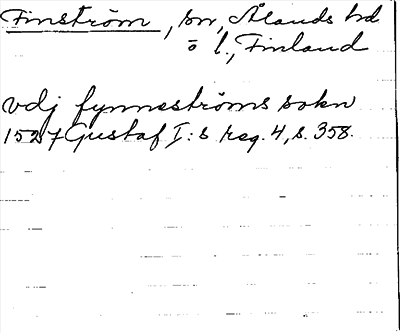 Finström, sn, Ålands hd
ö l., Finland
vdj fynneströms sokn
1527 Gustaf I:s reg. 4, s. 358.